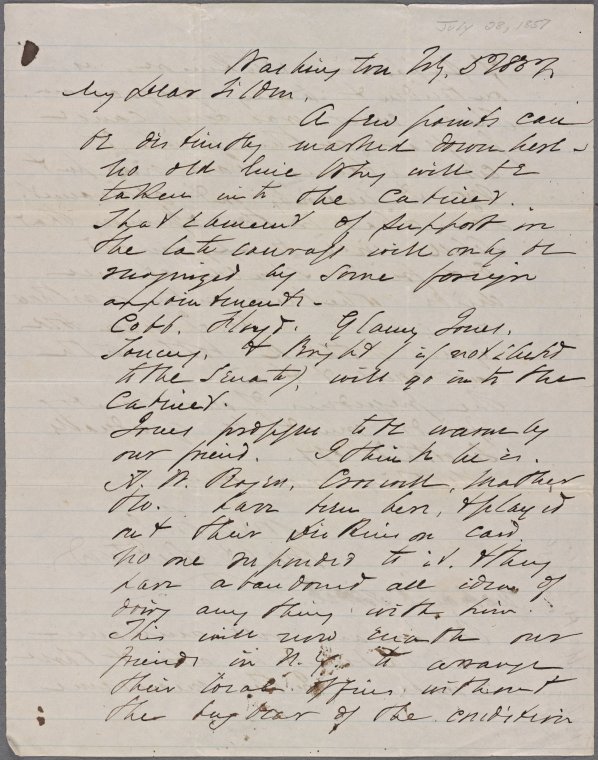 July 28, 1857
Washington Feby 5 1857
My Dear Tilden,
A few points can
be distinctly marked down here -
No old line Whig will be
taken into the Cabinet.
That element of support in
the late canvass will only be
recognized by some foreign
appointments -
Cobb, Floyd, Glancy Jones,
Toucey, & Bright (if not elected
to the Senate), will go into the
Cabinet.
Jones professes to be warmly
our friend. I think he is.
H. W. Croswell, Mather
&c. have been here, & played
out their Dickinson card
No one responded to it, & they
have abandoned all idea of
doing any thing with him.
This will now enable our
friends in N.Y. to arrange
their local offices without
the of the condition